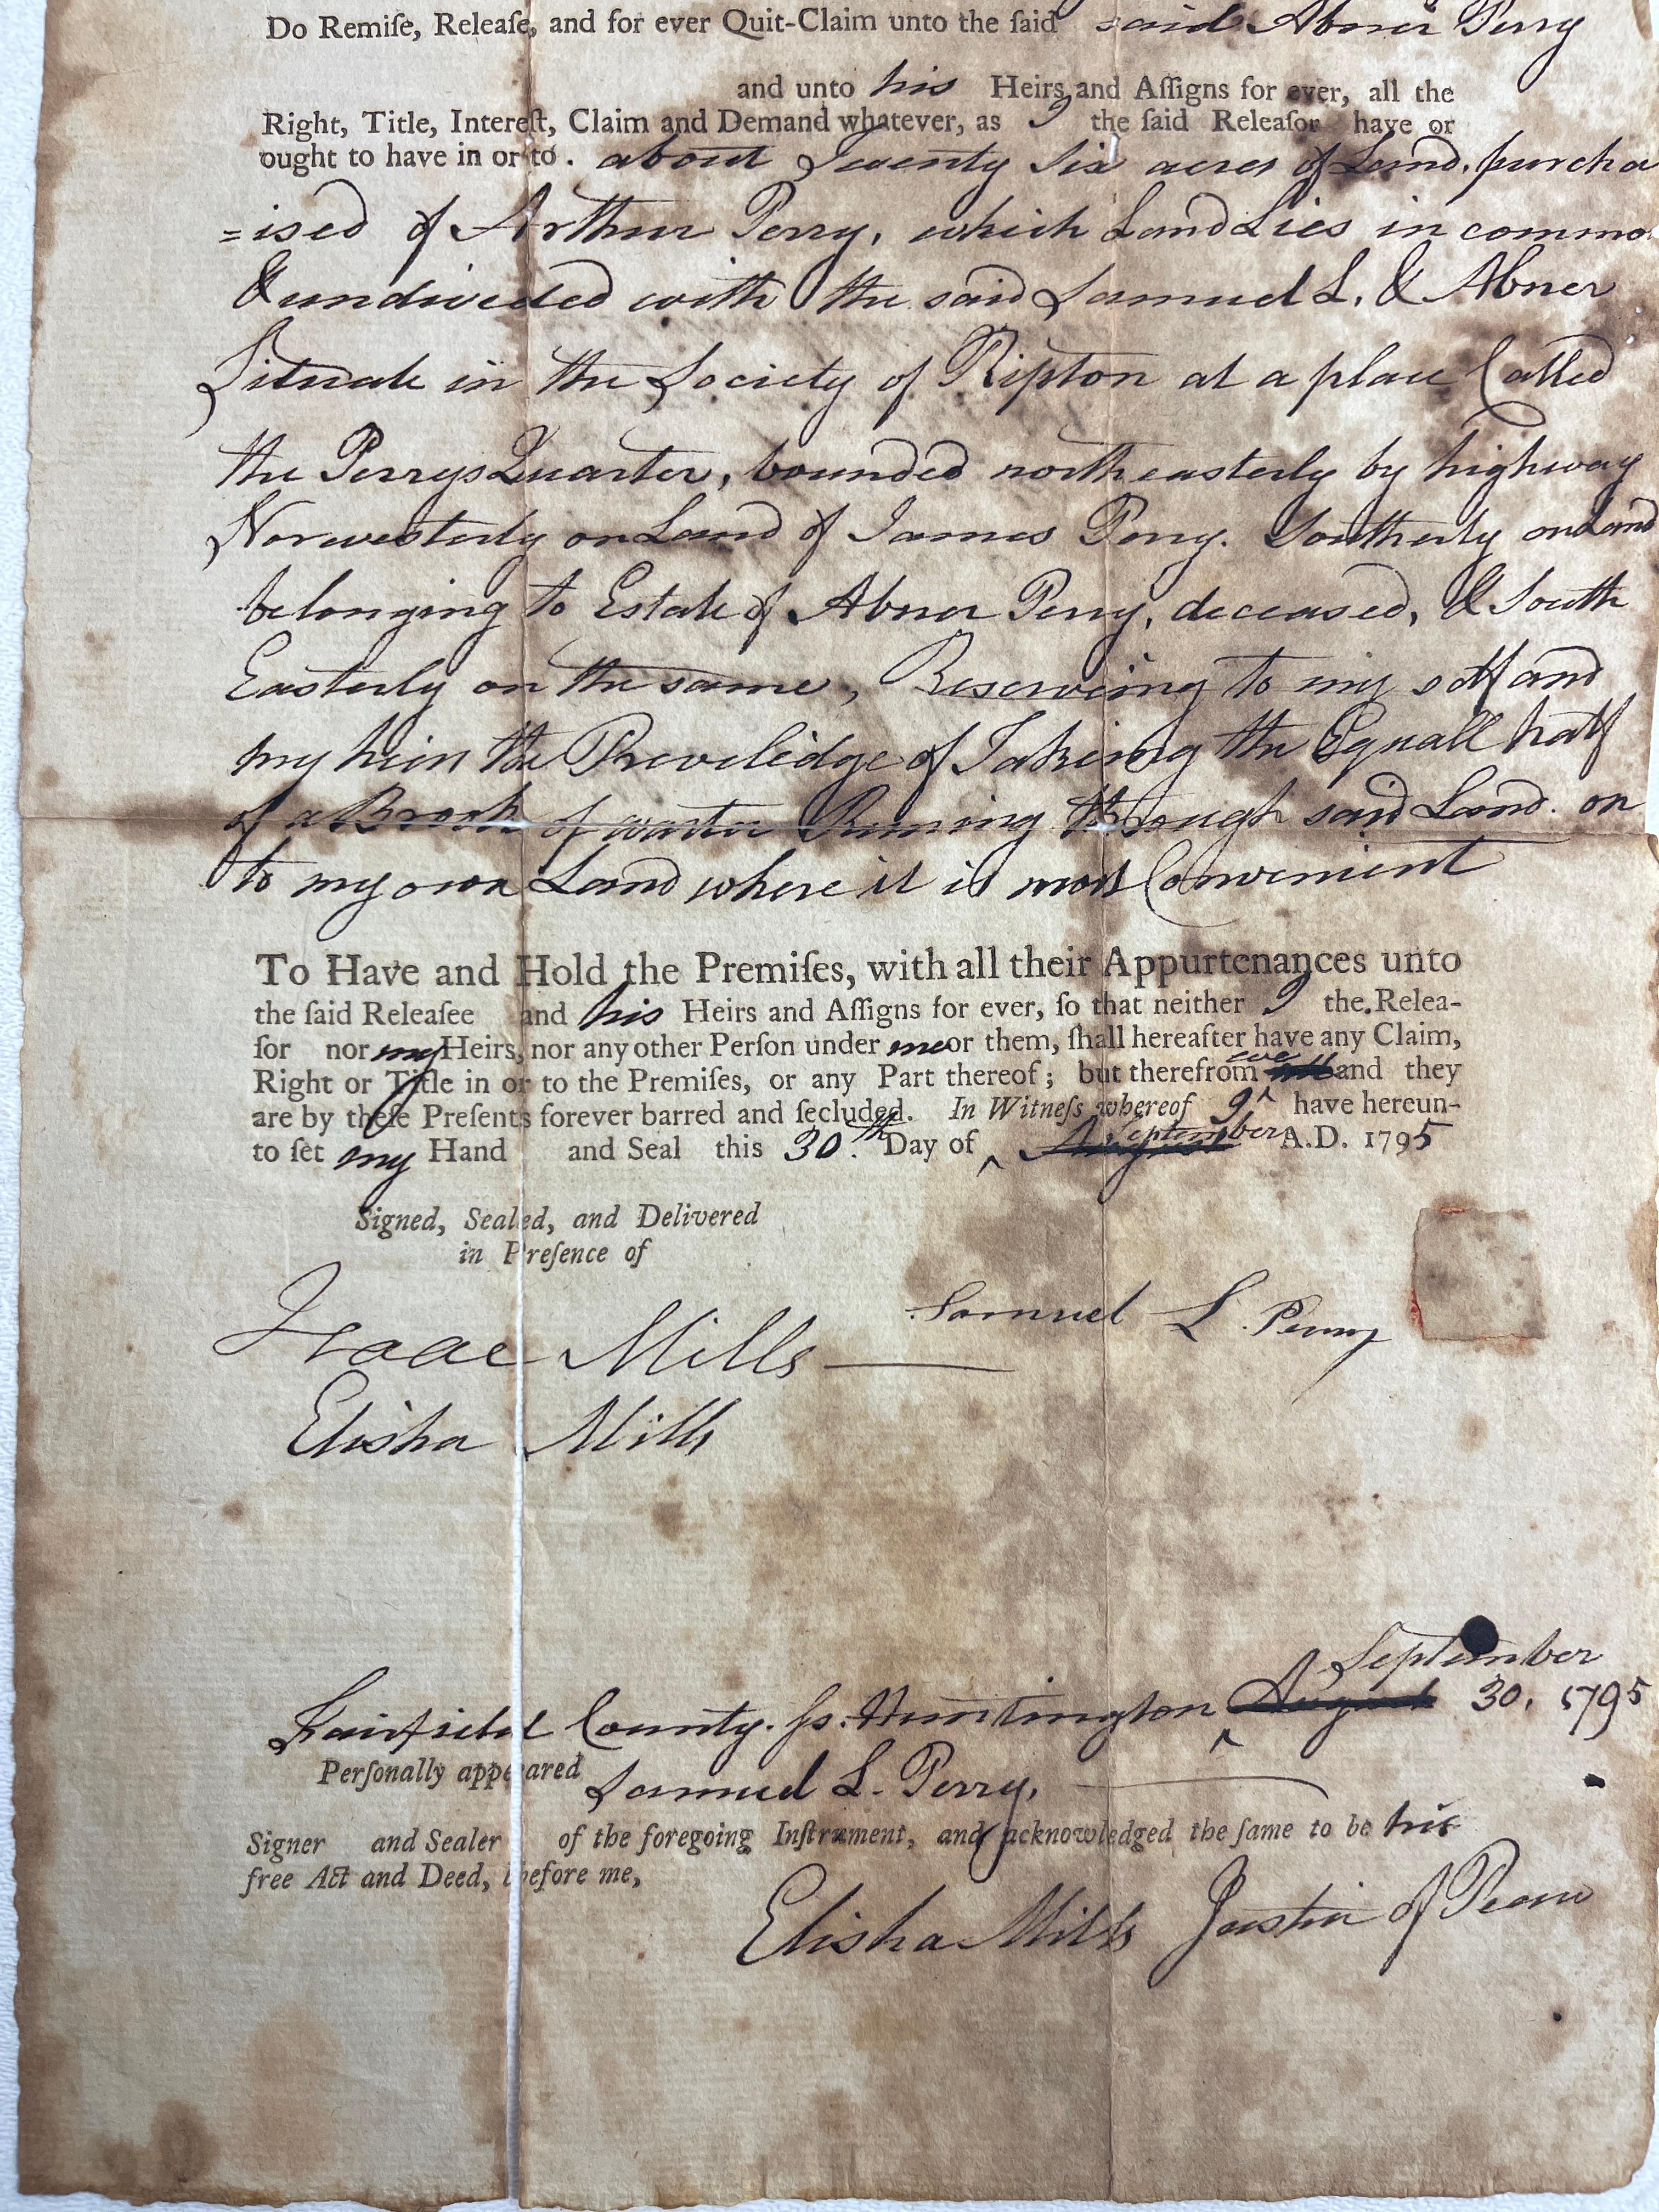 Do Remiſe, Releaſe, and for ever Quit-Claim unto the ſaid said Abner Perry
and unto his Heirs and Aſſigns for ever, all the
Right, Title, Intereſt, Claim and Demand whatever, as I the ſaid Releaſor have or
ought to have in or to. about Twenty Six acres of Land, purcha
=ised of Arthur Perry, which Land Lies in common
& undiveded with the said Samuel L. & Abner
Situate in the Society of Ripton at a place Called
the Perrys Quarter, bounded northeasterly by highway
Norwesterly on Land of James Perry. Southerly on Land
belonging to Estate of Abner Perry, deceased, & South
Easterly on the same, Reserveing to my self and
my heirs the Preveledge of Takeing the Equall half
of a Brook of warter Runing through said Land. on
to my own Land where it is most Convenient
To Have and Hold the Premiſes, with all their Appurtenances unto
the ſaid Releaſee and his Heirs and Aſſigns for ever, ſo that neither I the Relea-
ſor nor my Heirs, nor any other Perſon under me or them, ſhall hereafter have any Claim,
Right or Title in or to the Premiſes, or any Part thereof; but therefrom we and they
are by theſe Preſents forever barred and ſecluded. In Witneſs whereof I have hereun-
to ſet my Hand and Seal this 30.th Day of August September A.D. 1795
Signed, Sealed, and Delivered
in Preſence of
Isaac Mills
Samuel L. Perry
Elisha Mills
September
Fairfield County. ſs. Huntington August 30. 1795
Perſonally appeared Samuel L. Perry,
Signer and Sealer of the foregoing Inſtrument, and acknowledged the ſame to be his
free Act and Deed, before me,
Elisha Mills Justice of Peace